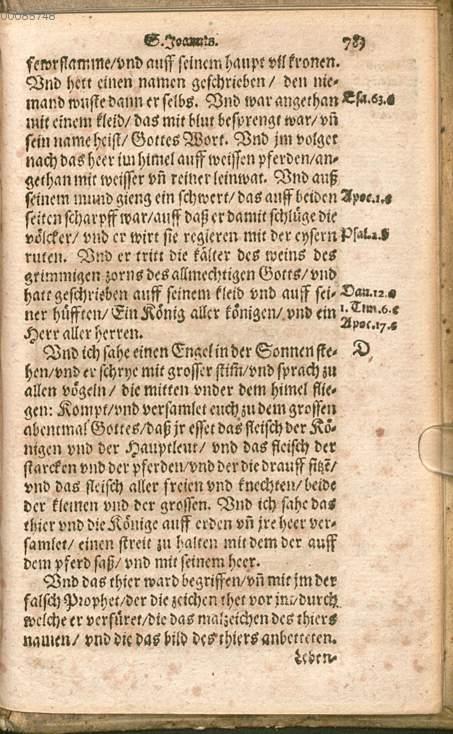 00085748
S. Joannis. 789
fewrflamme/vnd auff seinem haupt vil kronen.
Vnd hett einen namen geschrieben / den nie-
mand wuste dann er selbs. Vnd war angethan Esa.63.
mit einem kleid/das mit blut besprengt war/vñ
sein name heist/Gottes Wort. Vnd jm volget
nach das heer im himel auff weissen pferden/an-
gethan mit weisser vñ reiner leinwat. Vnd auß
seinem mund gieng ein schwert/das auff beiden Apoc.1.c
seiten scharpff war/auff daß er damit schlüge die
völcker/ vnd er wirt sie regieren mit der eysern Psal.2.b
ruten. Vnd er tritt die kälter des weins des
grimmigen zorns des allmechtigen Gotts/vnd
hatt geschrieben auff seinem kleid vnd auff sei- Dan.12.
ner hüfften/Ein König aller königen/vnd ein 1.Tim.6.c
Herr aller herren. Apoc.17.c
Vnd ich sahe einen Engel in der Sonnen ste- D
hen/vnd er schrye mit grosser stiṁ/vnd sprach zu
allen vögeln/ die mitten vnder dem himel flie-
gen: Kompt/vnd versamlet euch zu dem grossen
abentmal Gottes/daß jr esset das fleisch der Kö-
nigen vnd der Hauptleut/ vnd das fleisch der
starcken vnd der pferden/vnd der die drauff sitzē/
vnd das fleisch aller freien vnd knechten/beide
der kleinen vnd der grossen. Vnd ich sahe das
thier vnd die Könige auff erden vñ jre heer ver-
samlet/ einen streit zu halten mit dem der auff
dem pferd saß/ vnd mit seinem heer.
Vnd das thier ward begriffen/vñ mit jm der
falsch Prophet/der die zeichen thet vor jm/durch
welche er verfüret/die das malzeichen des thiers
namen/ vnd die das bild des thiers anbetteten.
Leben-